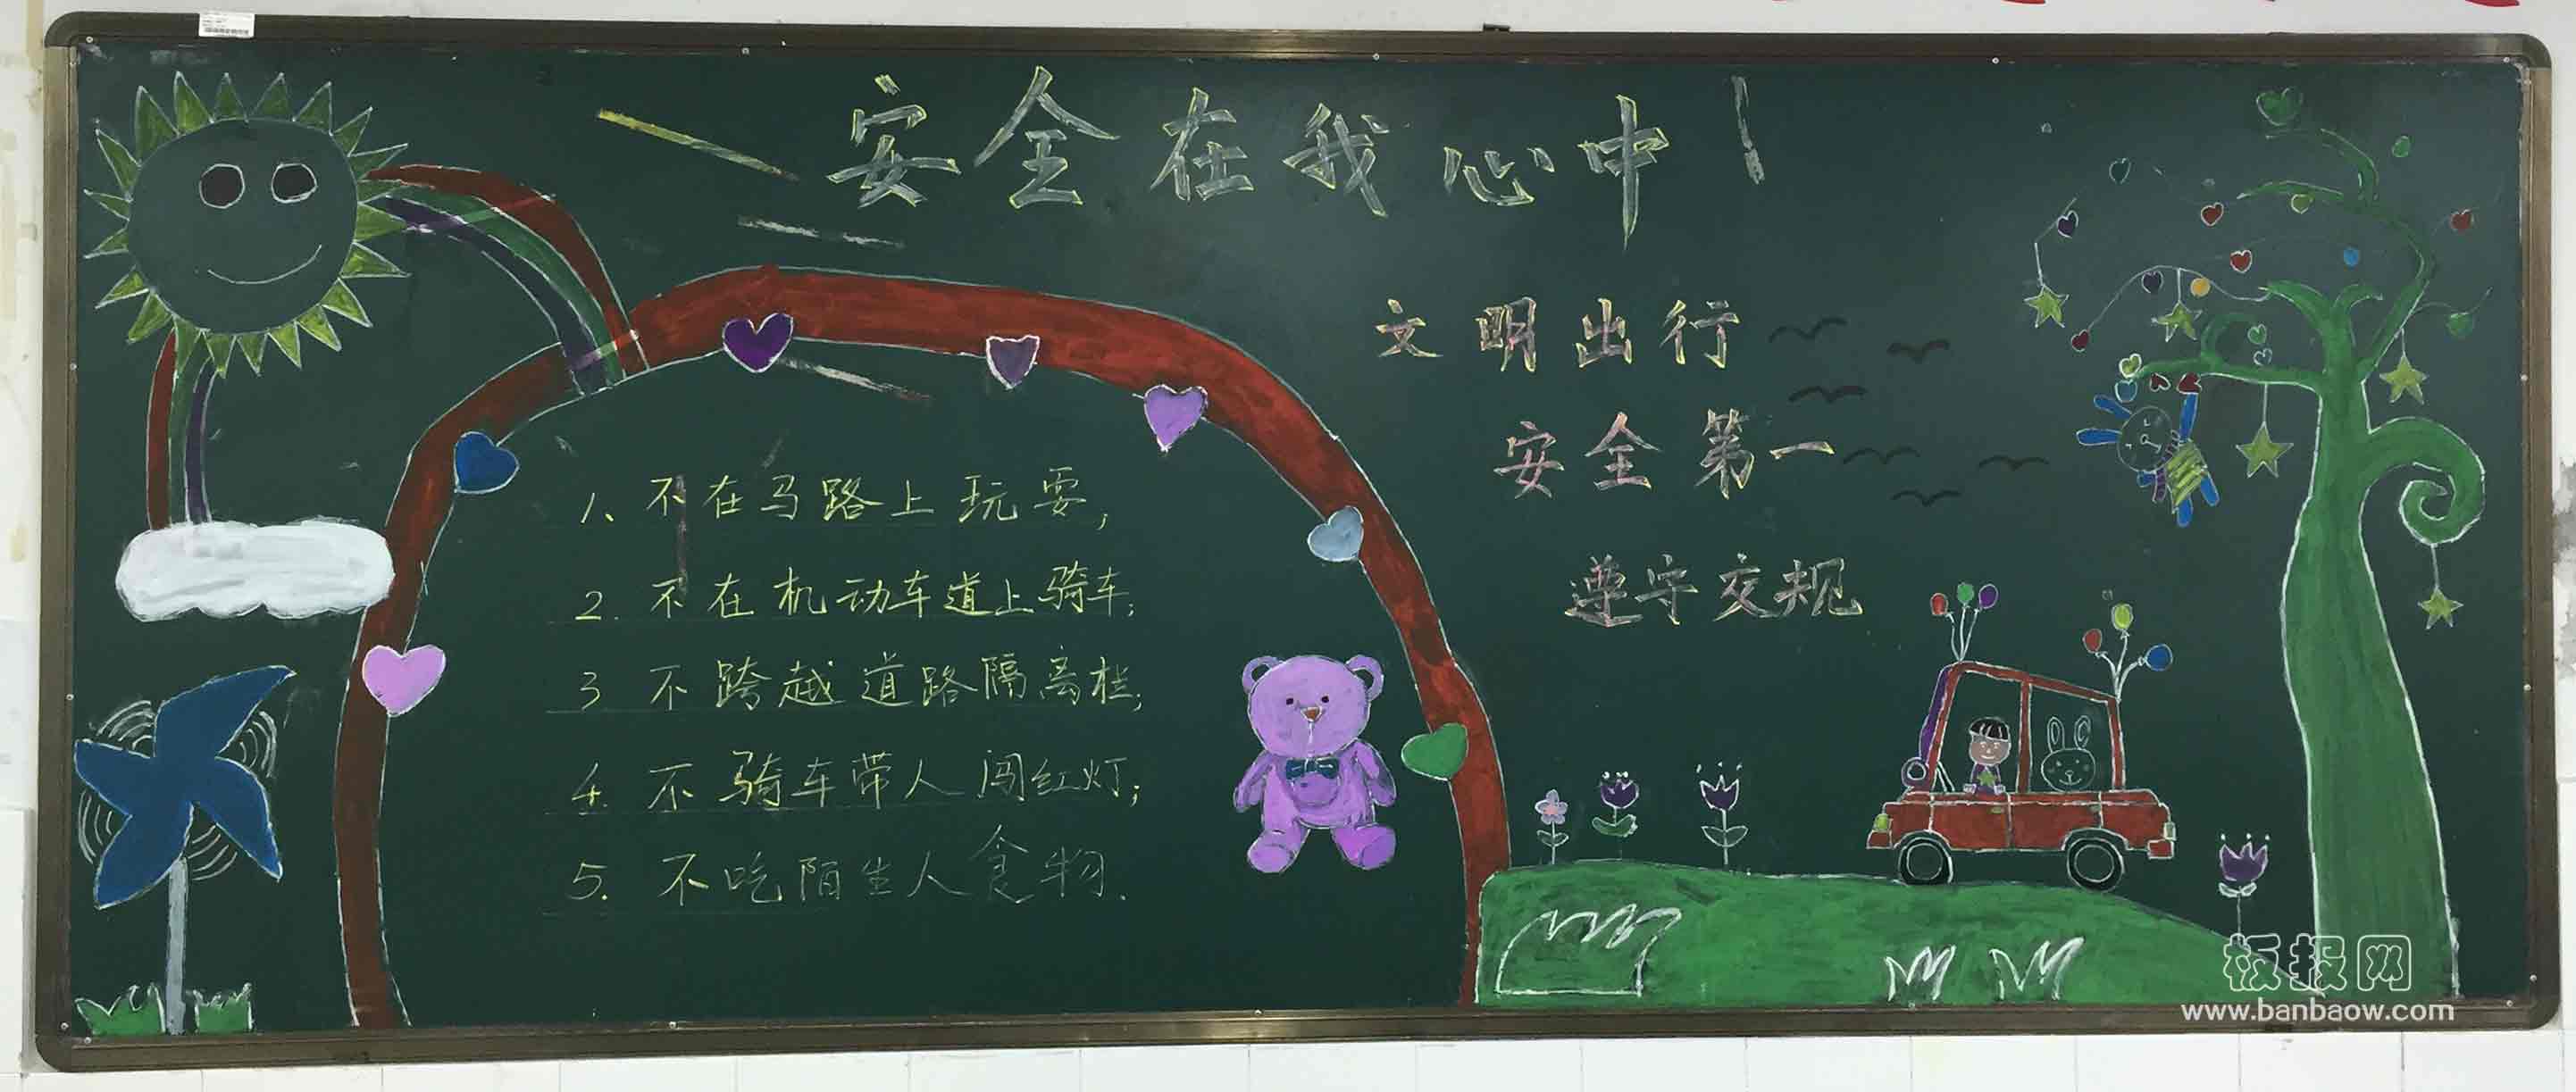 安全在我心中!
文明出行
安全第一
遵守交规
1、不在马路上玩耍,
2.不在机动车道上骑车;
3 不跨越道路隔离栏;
4.不骑车带人闯红灯;
5.不吃陌生人食物.
板报网
www.banbaow.com